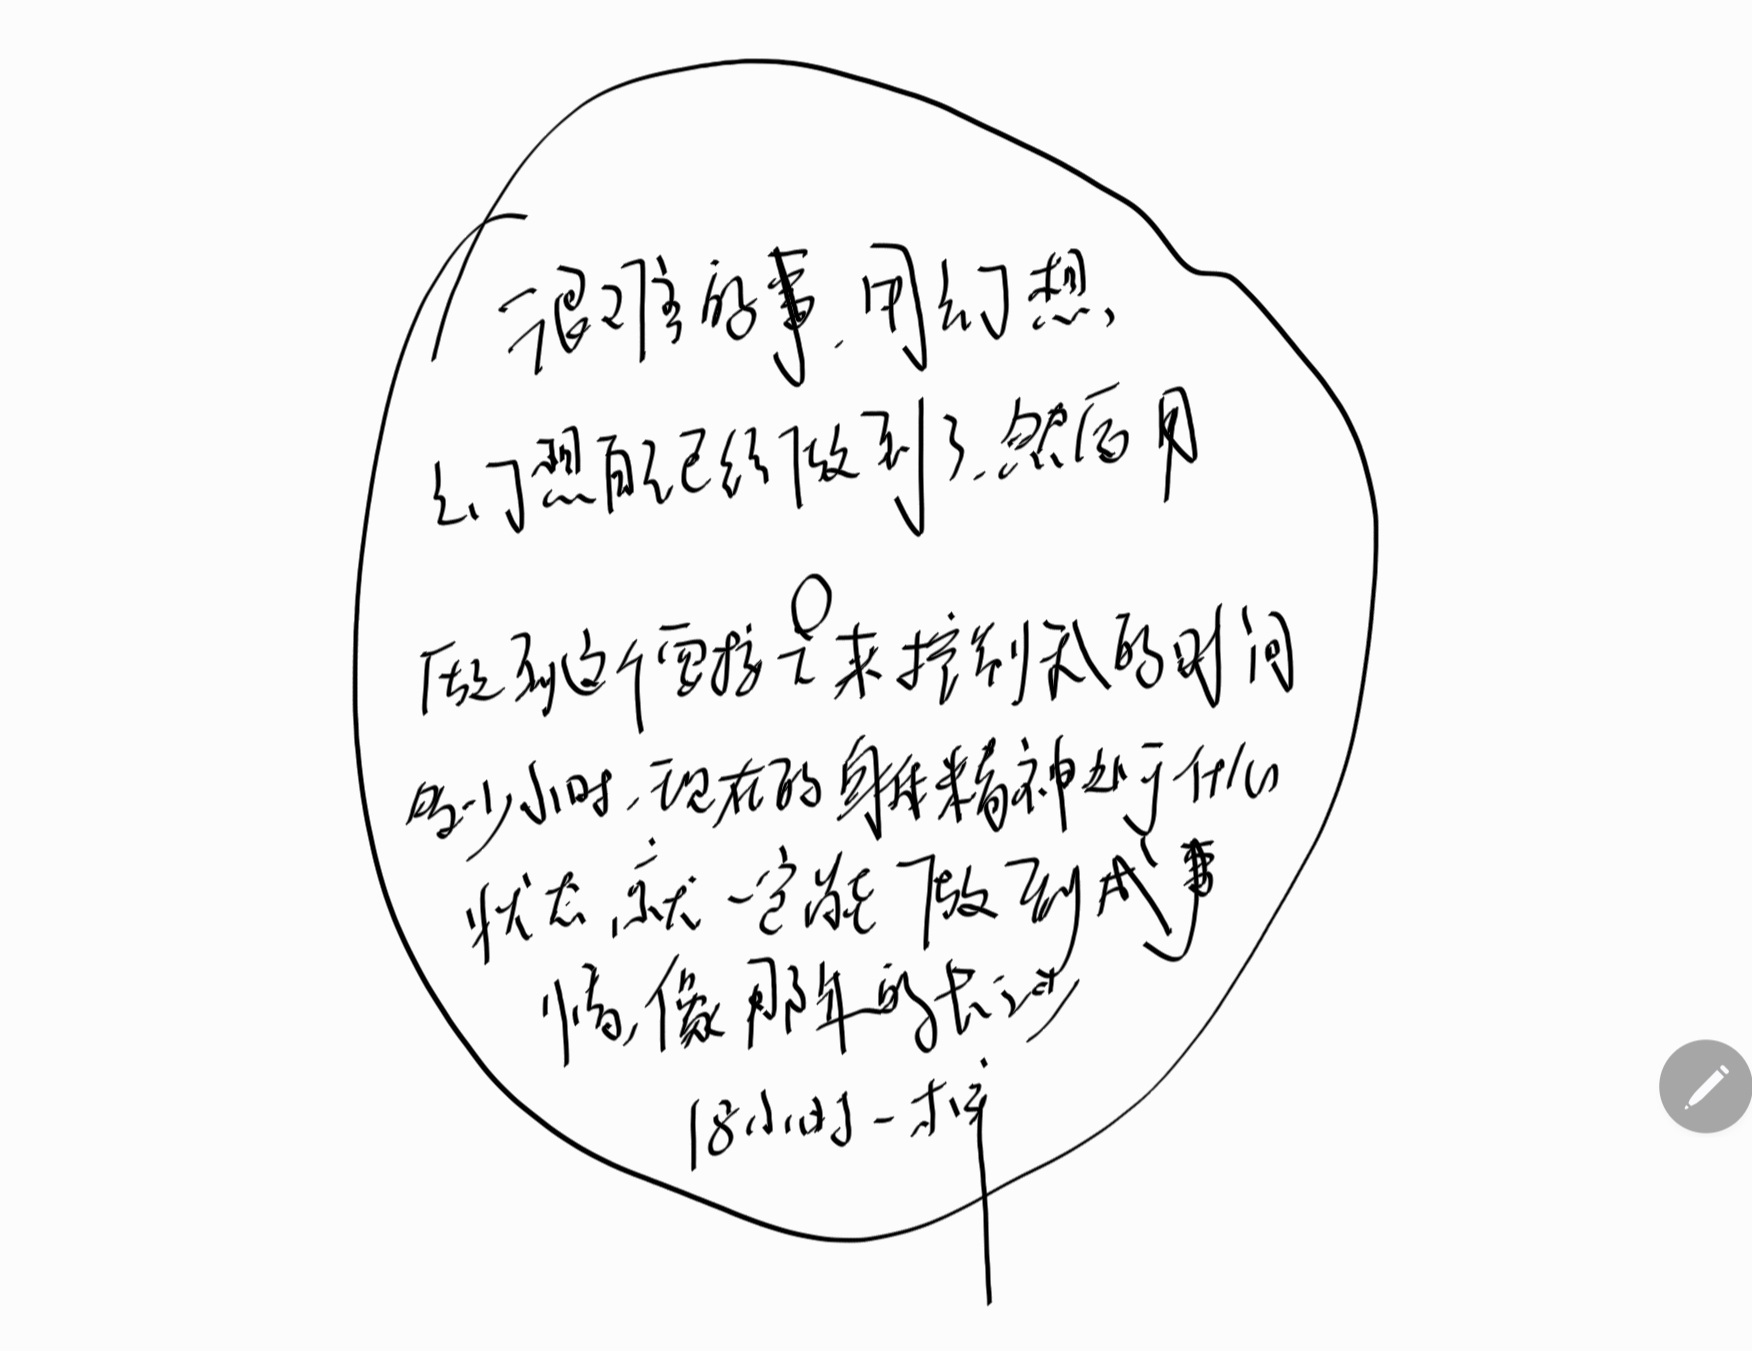 很难的事.用幻想,
幻想自己已经做到了.然后用
做到这个要按 来控制我的时间
多少小时.现在的身体精神处于什么
状态,就一定能做到成事
情,像那年的长途
18小时一样